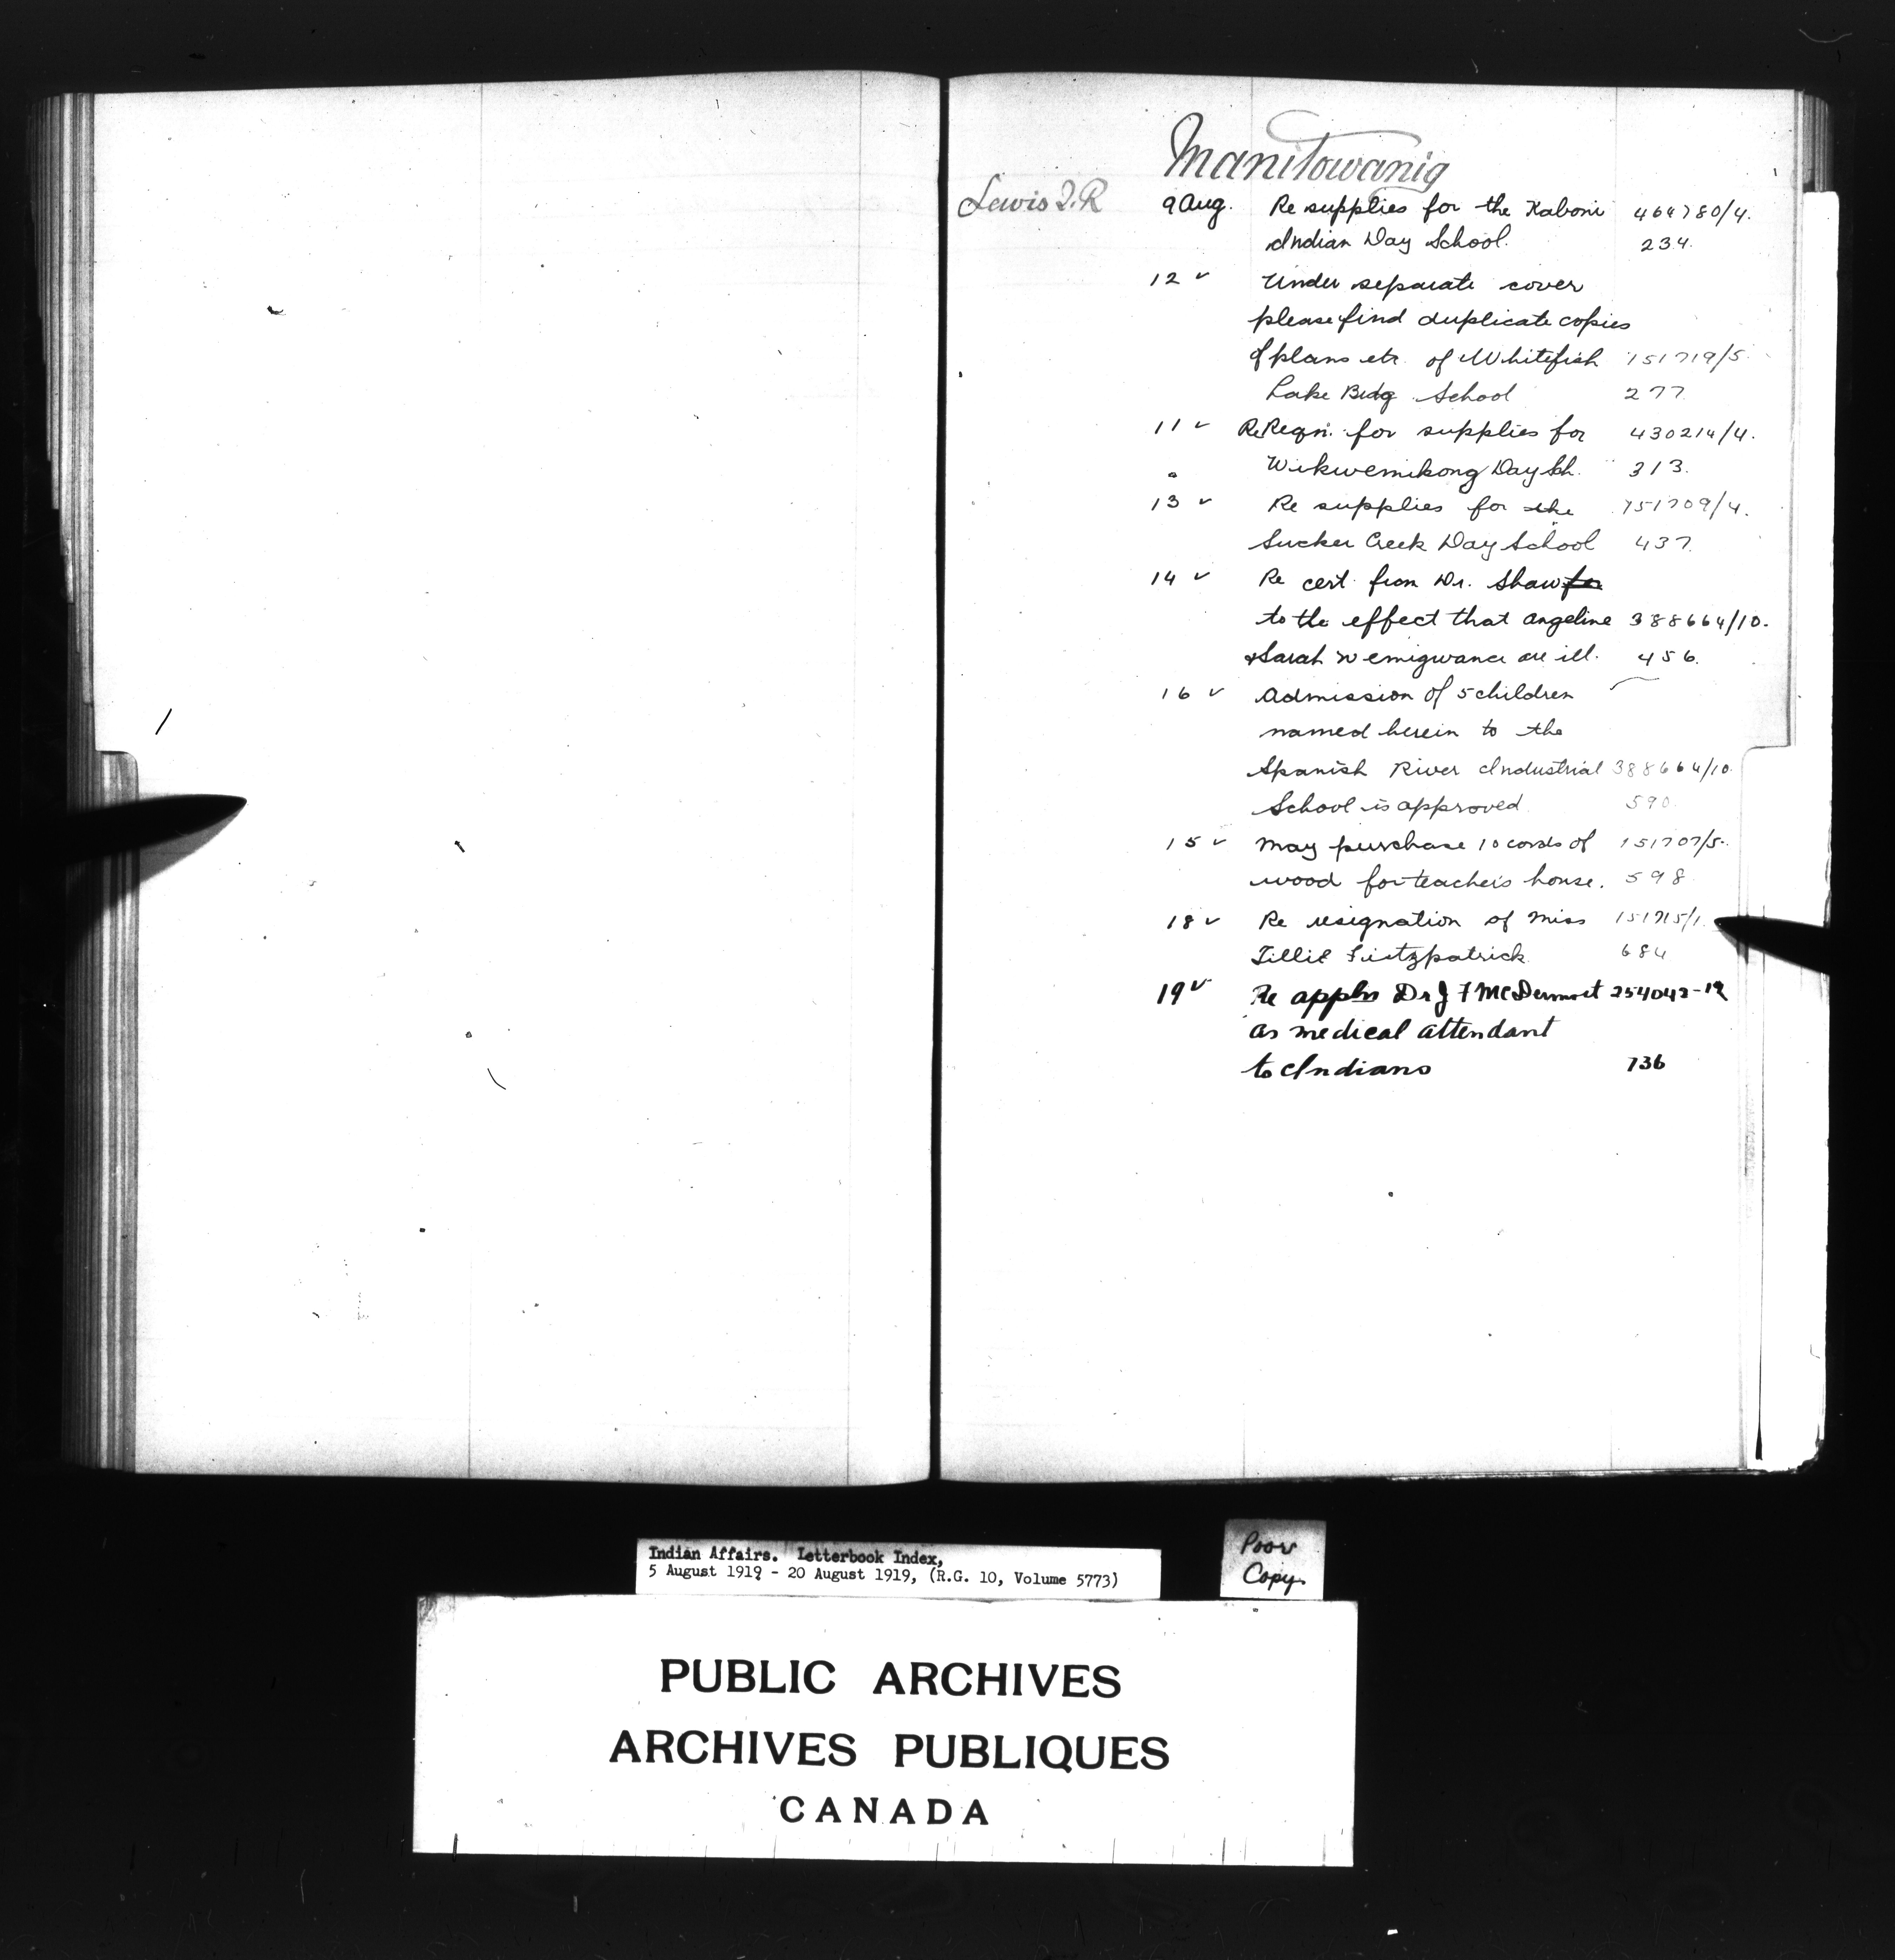 Manitowanig
Lewis I. R
9 Aug. Re supplies for the Kaboni 464780/4.
Indian Day School. 234.
12 ✓ Under separate cover
please find duplicate copies
of plans etc. of Whitefish 151719/5.
Lake Bldg School 277
11 ✓ Re Reqn. for supplies for 430214/4.
Wikwemikong Day Sch. 313.
13 ✓ Re supplies for the 151709/4.
Sucker Creek Day School 437
14 ✓ Re cert. from Dr. Shaw for
to the effect that Angeline 388664/10.
& Sarah Wemigwance are ill. 456.
16 ✓ Admission of 5 children
named herein to the
Spanish River Industrial 388664/10.
School is approved 590
15 ✓ May purchase 10 cords of 151707/5.
wood for teacher's house. 598
18 ✓ Re resignation of Miss 151715/1.
Tillie Fistzpatrick 684
19 ✓ Re appln Dr J F McDermott 254043-12
as medical attendant
to Indians 736
Indian Affairs. Letterbook Index,
5 August 1919 - 20 August 1919, (R.G. 10, Volume 5773)
Poor
Copy
PUBLIC ARCHIVES
ARCHIVES PUBLIQUES
CANADA